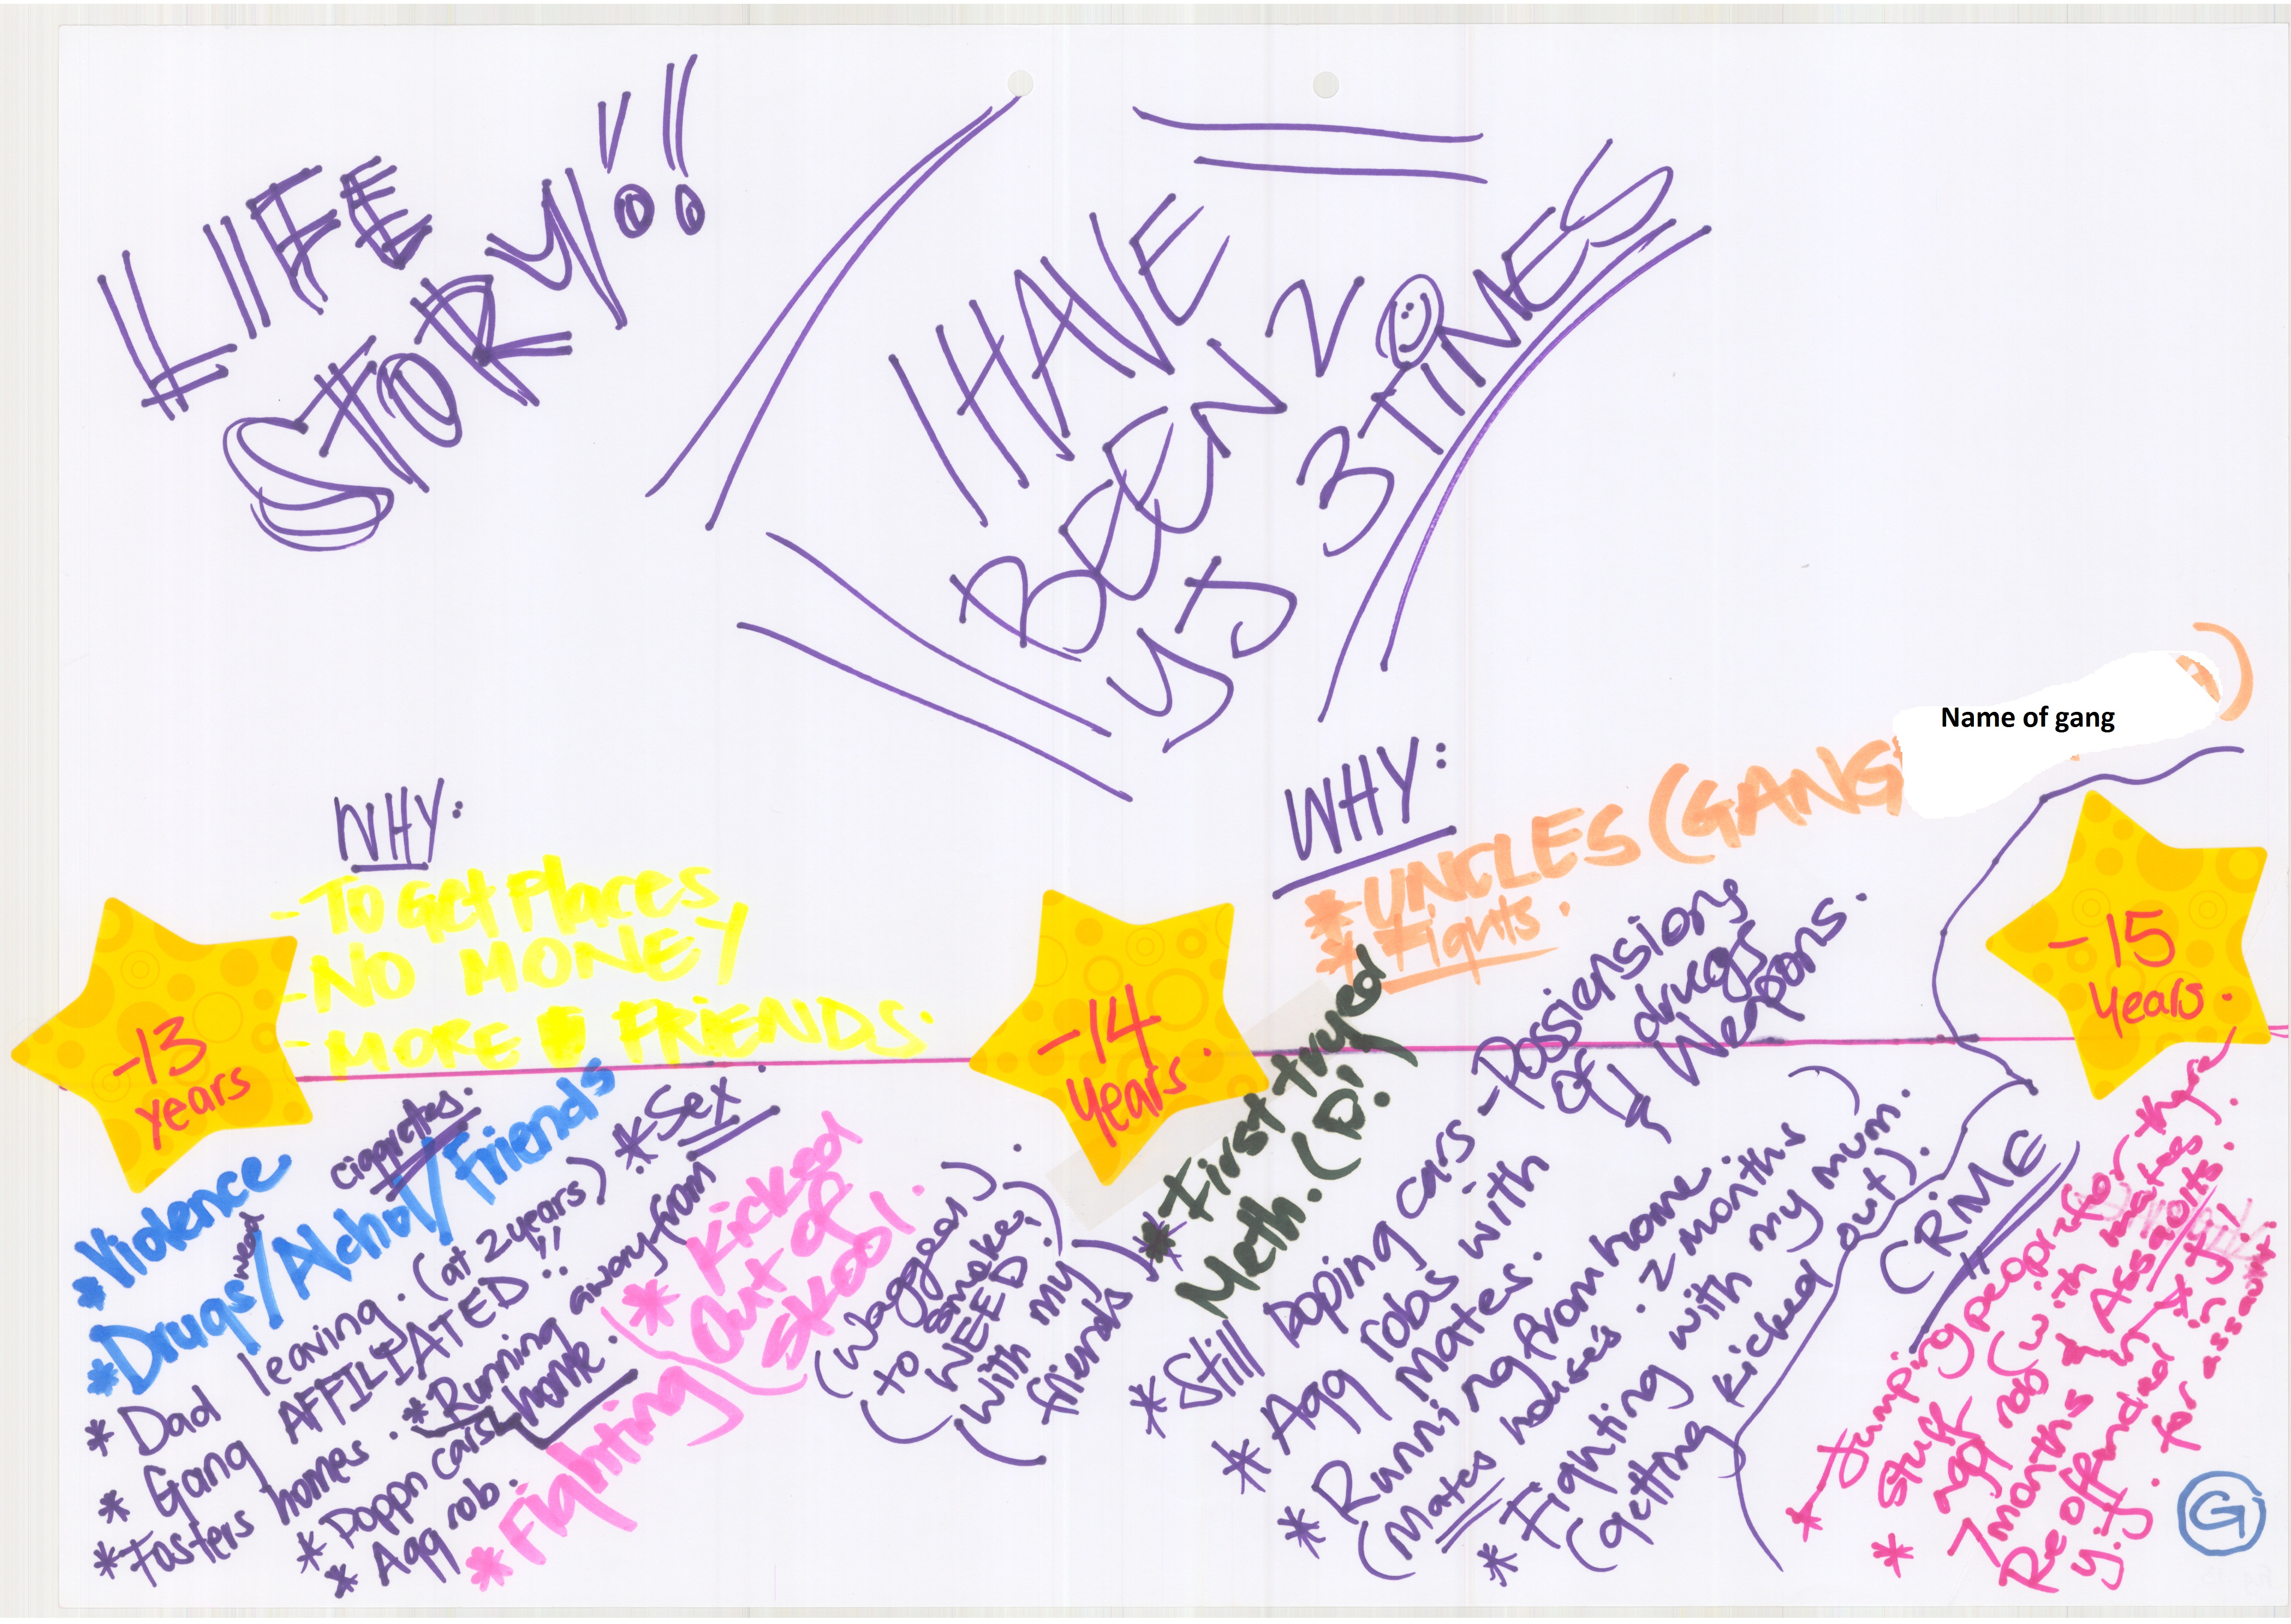 LIFE
STORY!!
I HAVE
BEEN 2
YJ 3 TIMES
WHY:
-TO Get Places
-NO MONEY
-MORE FRIENDS.
WHY:
* UNCLES (GANG
Name of gang
* Fights.
-13
years
-14
years.
-15
years.
Ciggretes.
* Violence
* Drugs/Alchol/Friends
weed
* Sex.
* Dad leaving. (at 2 years)
* Gang AFFILIATED!!
* Fosters homes.
* Running away from
home.
* Poppn cars
* Agg rob.
* Fighting
* Kicked
Out of
Skool.
(Wagged)
to smoke
WEED!
with my
friends)
* First tryed
Meth. (P!
* Still Poping cars
- Possiensions
of drugs
& Weapons.
* Agg robs with
mates.
* Running from home.
(Mates houses. 2 months)
* Fighting with my mum.
(getting kicked out).
CRIME
* Jumping people for there
stuff.
* agg rob (with mates).
7 months & Assaults.
Reoffended in
y.j. for assault
G